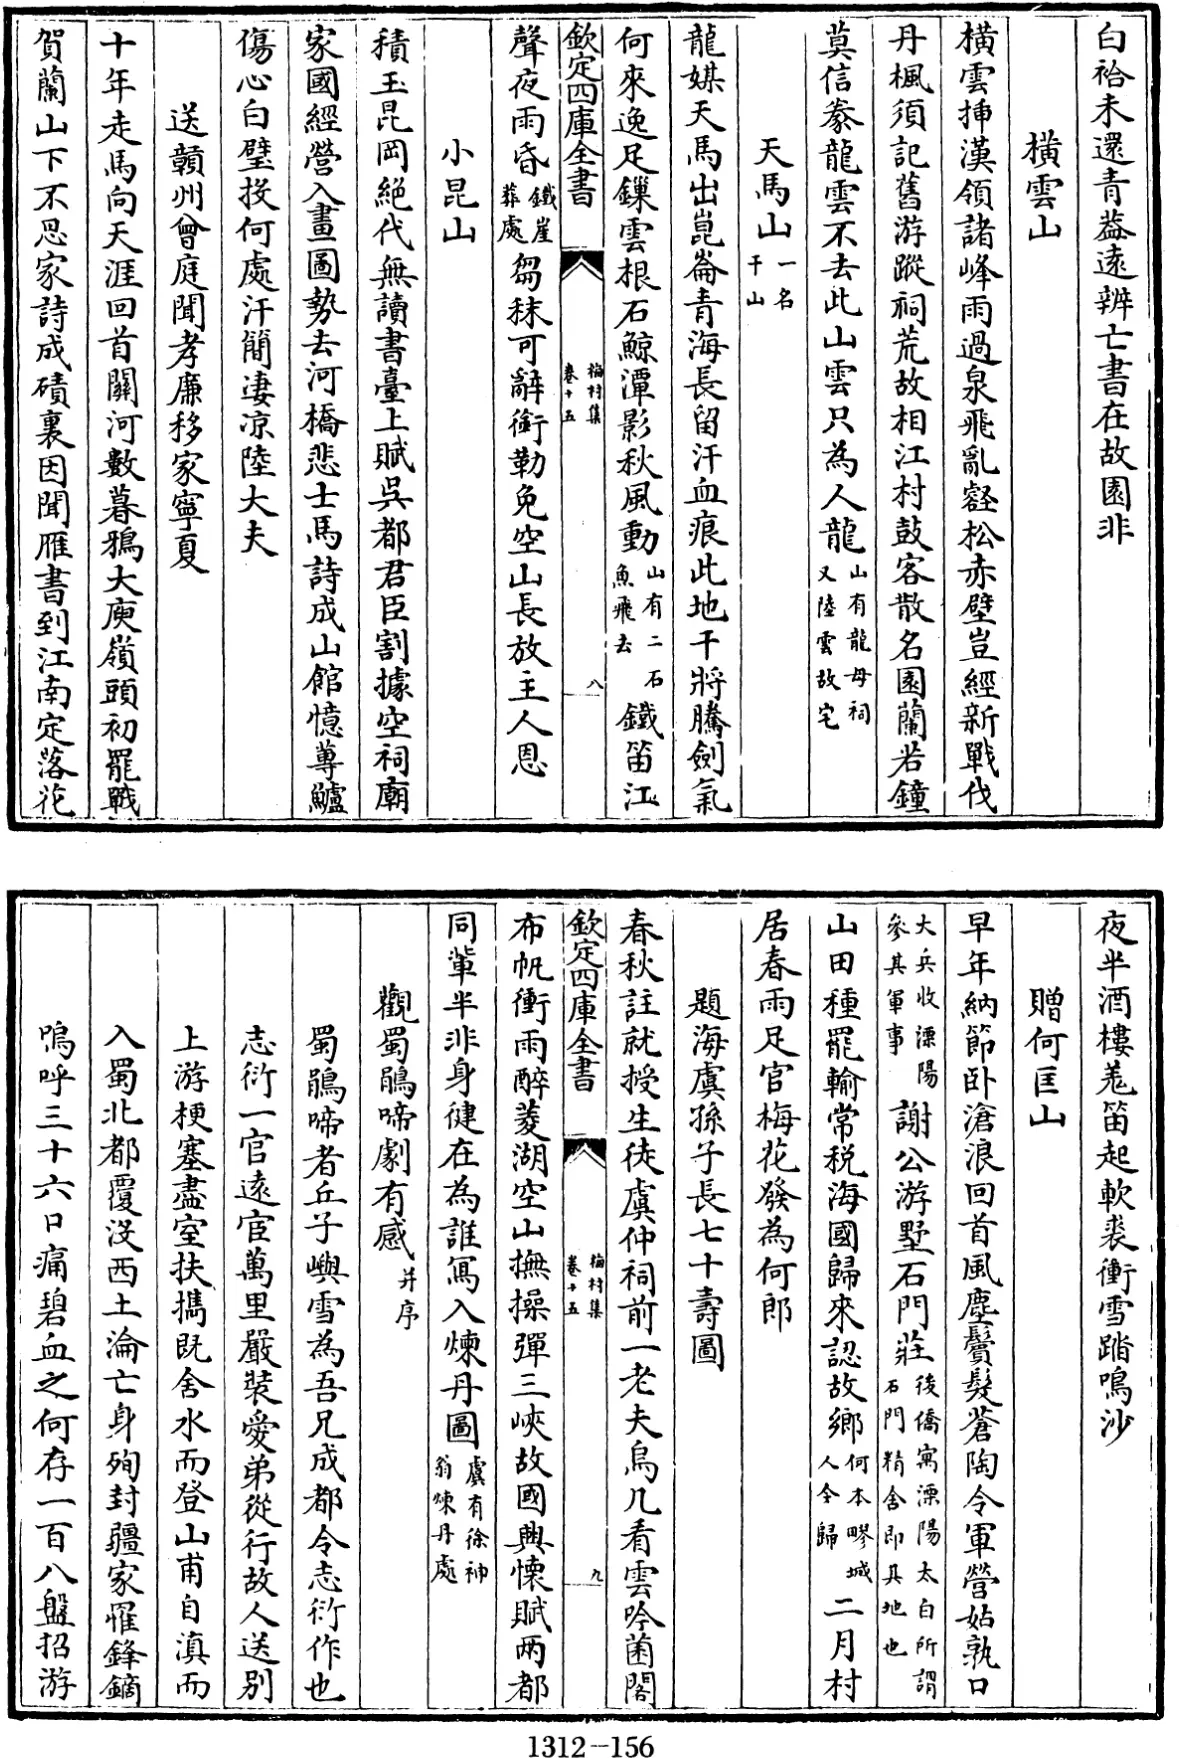 白袷未還青葢遠辨亡書在故園非
橫雲山
橫雲揷漢領諸峰雨過泉飛亂壑松赤壁豈經新戰伐
丹楓須記舊游蹤祠荒故相江村鼓客散名園蘭若鐘
莫信豢龍雲不去此山雲只為人龍山有龍母祠又陸雲故宅
天馬山一名干山
龍媒天馬出崑崙青海長留汗血痕此地干將騰劍氣
何來逸足鏁雲根石鯨潭影秋風動山有二石魚飛去鐵笛江
欽定四庫全書
梅村集
卷十五
八
聲夜雨昏鐵崖葬處芻秣可辭銜勒免空山長放主人恩
小昆山
積玉昆岡絕代無讀書臺上賦吳都君臣割據空祠廟
家國經營入畫圖勢去河橋悲士馬詩成山館憶蓴鱸
傷心白璧投何處汗簡凄凉陸大夫
送贛州曾庭聞孝廉移家寧夏
十年走馬向天涯回首關河數暮鴉大庾嶺頭初罷戰
賀蘭山下不思家詩成磧裏因聞雁書到江南定落花
夜半酒樓羗笛起軟裘衝雪踏鳴沙
贈何匡山
早年納節卧滄浪回首風塵鬢髮蒼陶令軍營姑孰口
大兵收溧陽參其軍事謝公游墅石門莊後僑寓溧陽太白所謂石門精舍即其地也
山田種罷輸常税海國歸來認故鄉何本郻城人今歸二月村
居春雨足官梅花發為何郎
題海虞孫子長七十壽圖
春秋註就授生徒虞仲祠前一老夫烏几看雲吟菌閣
欽定四庫全書
梅村集
卷十五
九
布帆衝雨醉菱湖空山撫操彈三峽故國興懷賦兩都
同輩半非身健在為誰寫入煉丹圖虞有徐神翁煉丹處
觀蜀鵑啼劇有感并序
蜀鵑啼者丘子嶼雪為吾兄成都令志衍作也
志衍一官遠宦萬里嚴裝愛弟從行故人送別
上游梗塞盡室扶攜既舍水而登山甫自滇而
入蜀北都覆没西土淪亡身殉封疆家罹鋒鏑
嗚呼三十六口痛碧血之何存一百八盤招游
1312-156